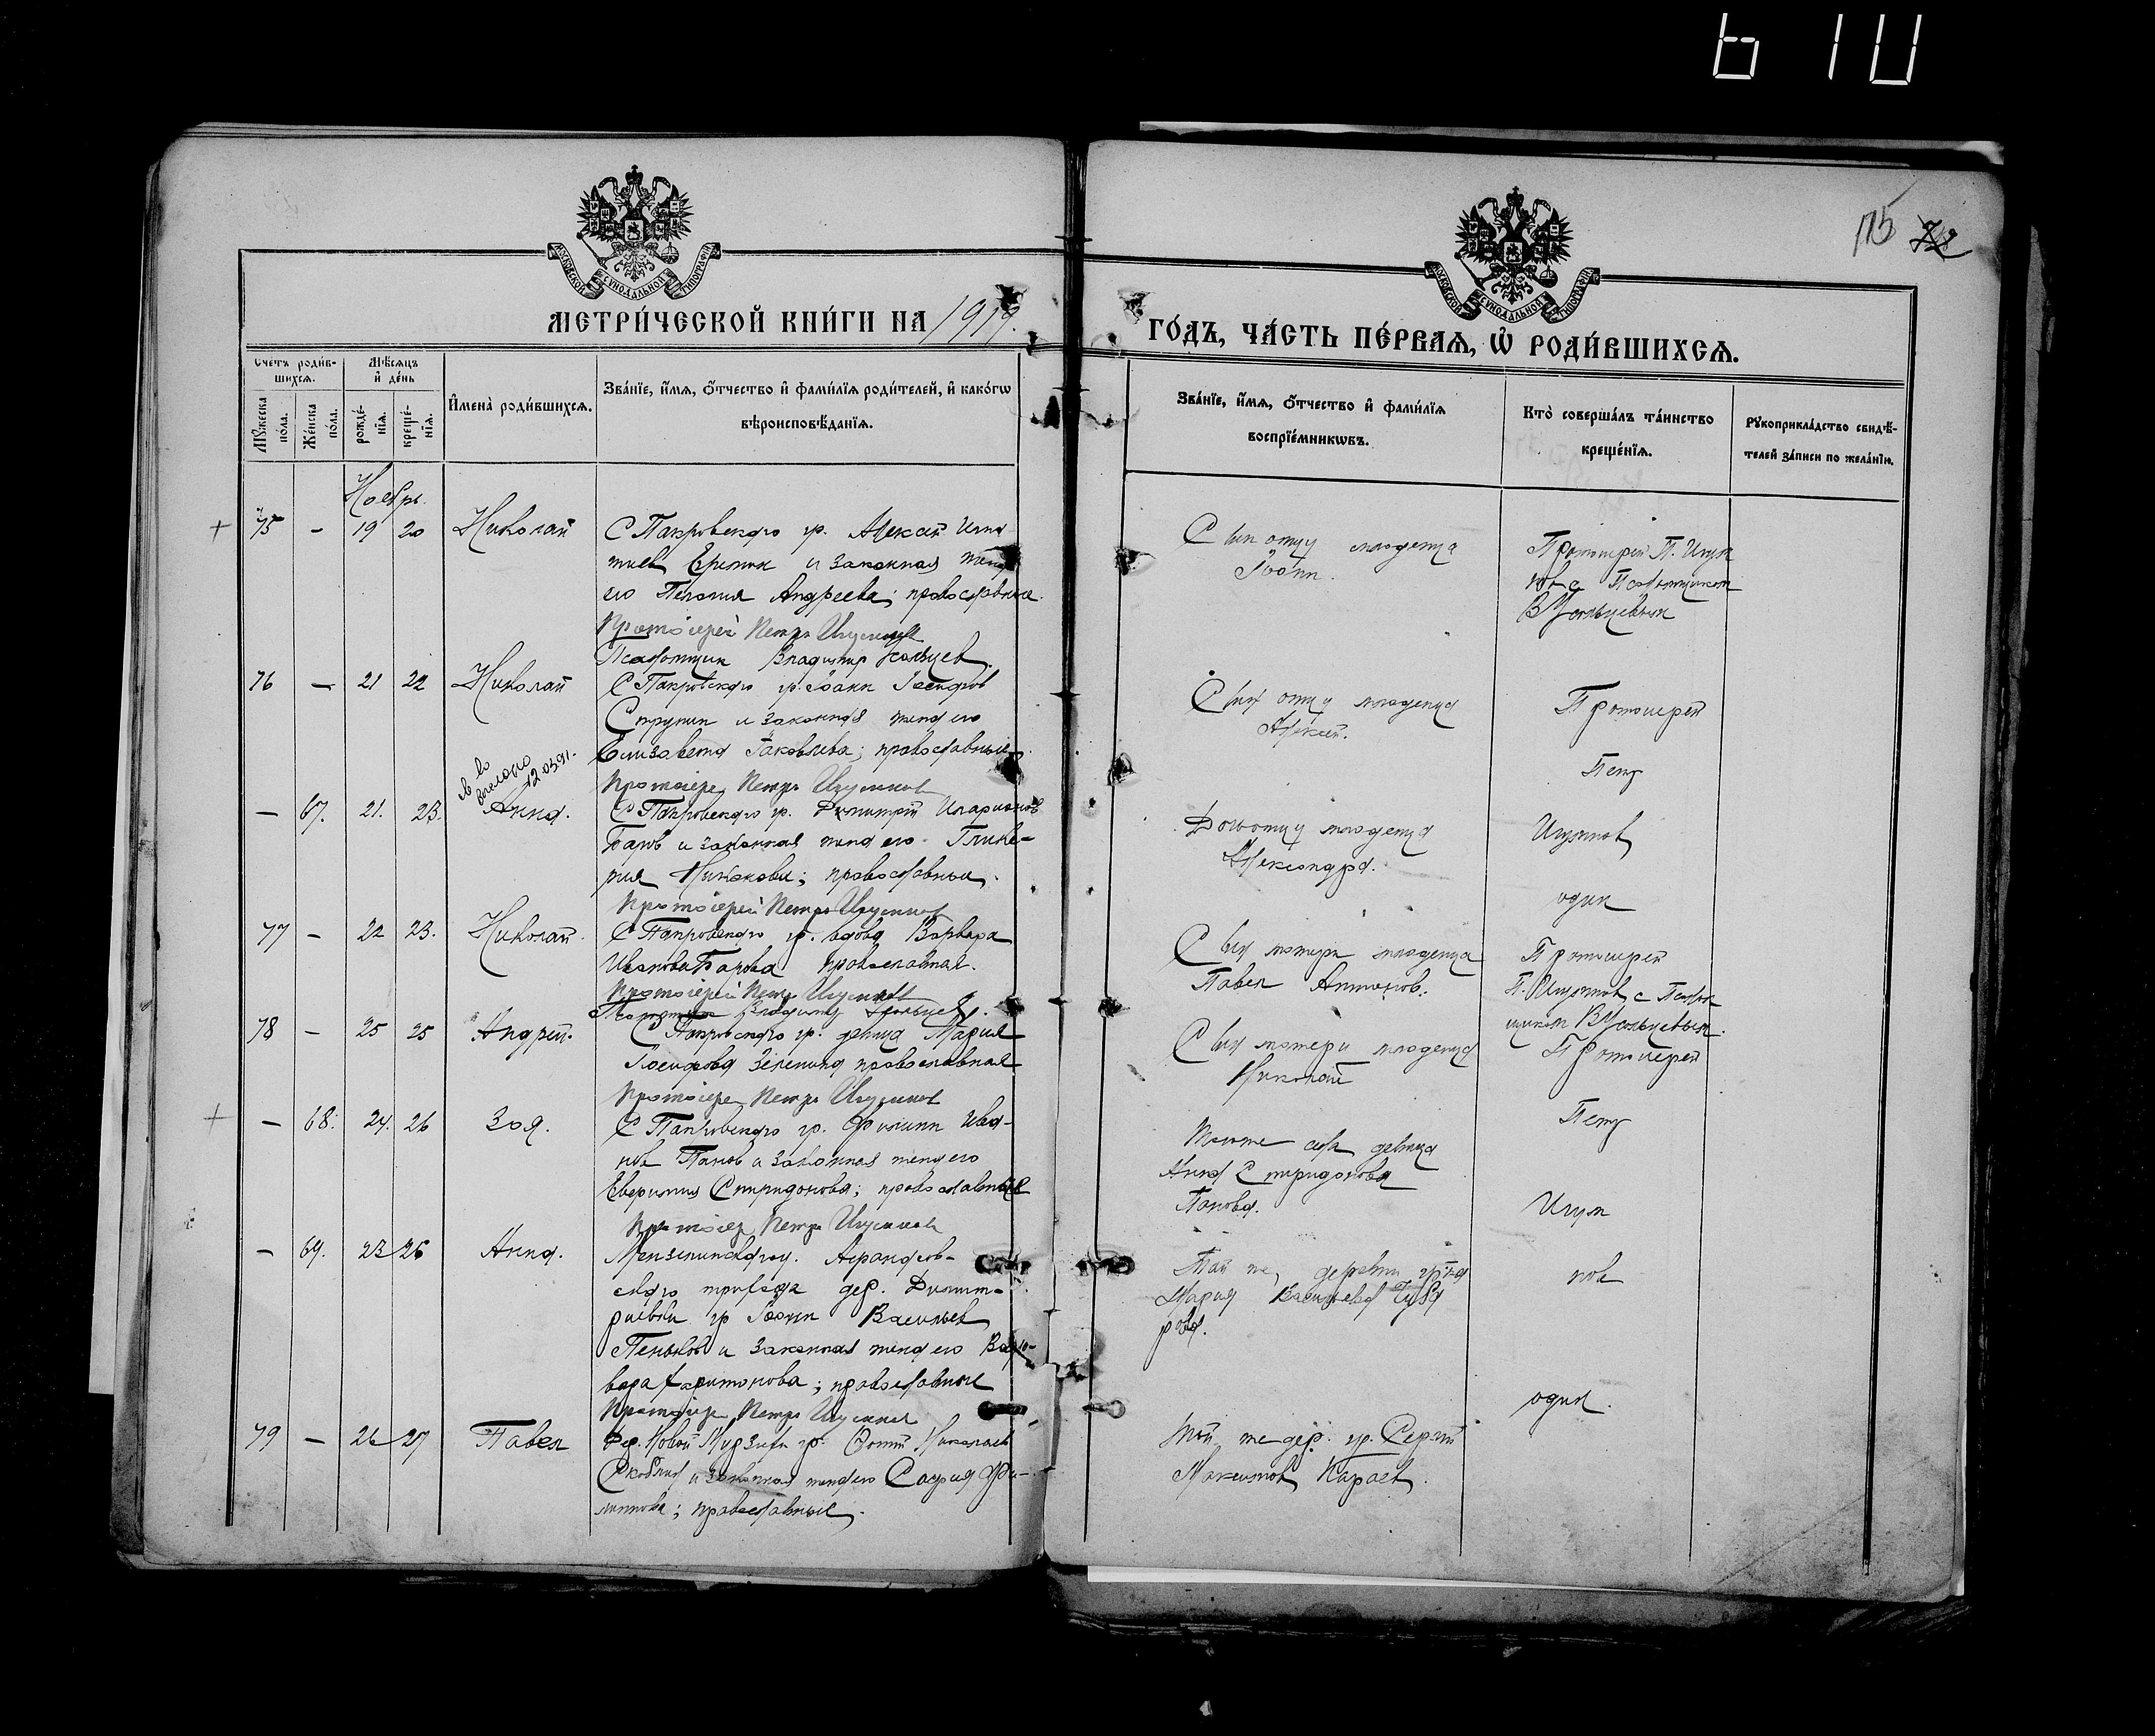 610
115 72
МОСКОВСКОЙ СУНОДАЛЬНОЙ ТИПОГРАФІИ
МОСКОВСКОЙ СУНОДАЛЬНОЙ ТИПОГРАФІИ
МЕТРИ́ЧЕСКОЙ КНИ́ГИ НА 1919.
ГО́ДЪ, ЧА́СТЬ ПЕ́РВАѦ, Ѡ РОДИ́ВШИХСѦ.
Счетъ роди́вшихсѧ.
Мꙋжеска по́ла.
Же́нска по́ла.
Мѣ́сѧцъ и҆ де́нь
рожде́нїѧ.
креще́нїѧ.
И҆мена̀ роди́вшихсѧ.
Зва́нїе, и҆́мѧ, ѻ҆́тчество и҆ фами́лїѧ роди́телей, и҆ како́гѡ
вѣроисповѣ́данїѧ.
Зва́нїе, и҆́мѧ, ѻ҆́тчество и҆ фами́лїѧ
воспрїе́мникѡвъ.
Кто̀ соверша́лъ та́инство
креще́нїѧ.
Рꙋкоприкла́дство свидѣ́-
телей за́писи по жела́нїю.
Ноябрь.
75 – 19 20 Николай
С Покровскаго гр. Алексей Игна
тиев Еремин и законная жена
его Пелагия Андреева; православные.
Протоіерей Петръ Игумнов
Псаломщик Владимир Усольцев.
Сын отцу младенца
Іоанн.
Протоиерей П. Игум
нов с Псаломщиком
В Усольцевым
76 – 21 22 Николай
С Покровскаго гр. Іоанн Іосифов
и законная жена его
Елизавета Іаковлева; православные.
Протоіерей Петръ Игумнов
Сын отцу младенца
Алексей.
Протоиерей
Петр
12.03.91.
– 67. 21. 23. Анна.
С Покровскаго гр. Димитрий Иларионов
Баров и законная жена его Глике-
рия Никонова; православные.
Протоіерей Петръ Игумнов
Дочь отцу младенца
Александра.
Игумнов
один
77 – 22 23. Николай.
С Покровскаго гр. вдова Варвара
Иванова Барова православная.
Протоіерей Петръ Игумнов
Псаломщик Владимир Усольцев.
Сын матери младенца
Павел Антонов.
Протоиерей
П. Игумнов с Псалом
щиком В Усольцевым.
78 – 25 25 Андрей.
С Покровскаго гр. девица Мария
Іосифова Зеленина православная
Протоіерей Петръ Игумнов
Сын матери младенца
Николай
Протоиерей
– 68. 24. 26 Зоя.
С Покровскаго гр. Филипп Ива-
нов Панов и законная жена его
Спиридонова; православные
Протоіерей Петръ Игумнов
Того же села девица
Анна Спиридонова
Панова.
Петр
Игум
– 69. 23 26 Анна.
Мензелинскаго у. Афанасов-
скаго прихода дер. Димит-
риевки гр Іоанн Васильев
Пеньков и законная жена его Вар-
вара Харитонова; православные
Протоіерей Петръ Игумнов
Той же деревни гр-ка
Мария Васильева
нов
один.
79 – 26 27 Павел
Дер. Новой гр. Николаев
и законная жена его София Фи-
липпова; православные.
Той же дер. гр. Сергей
Максимов Караев.